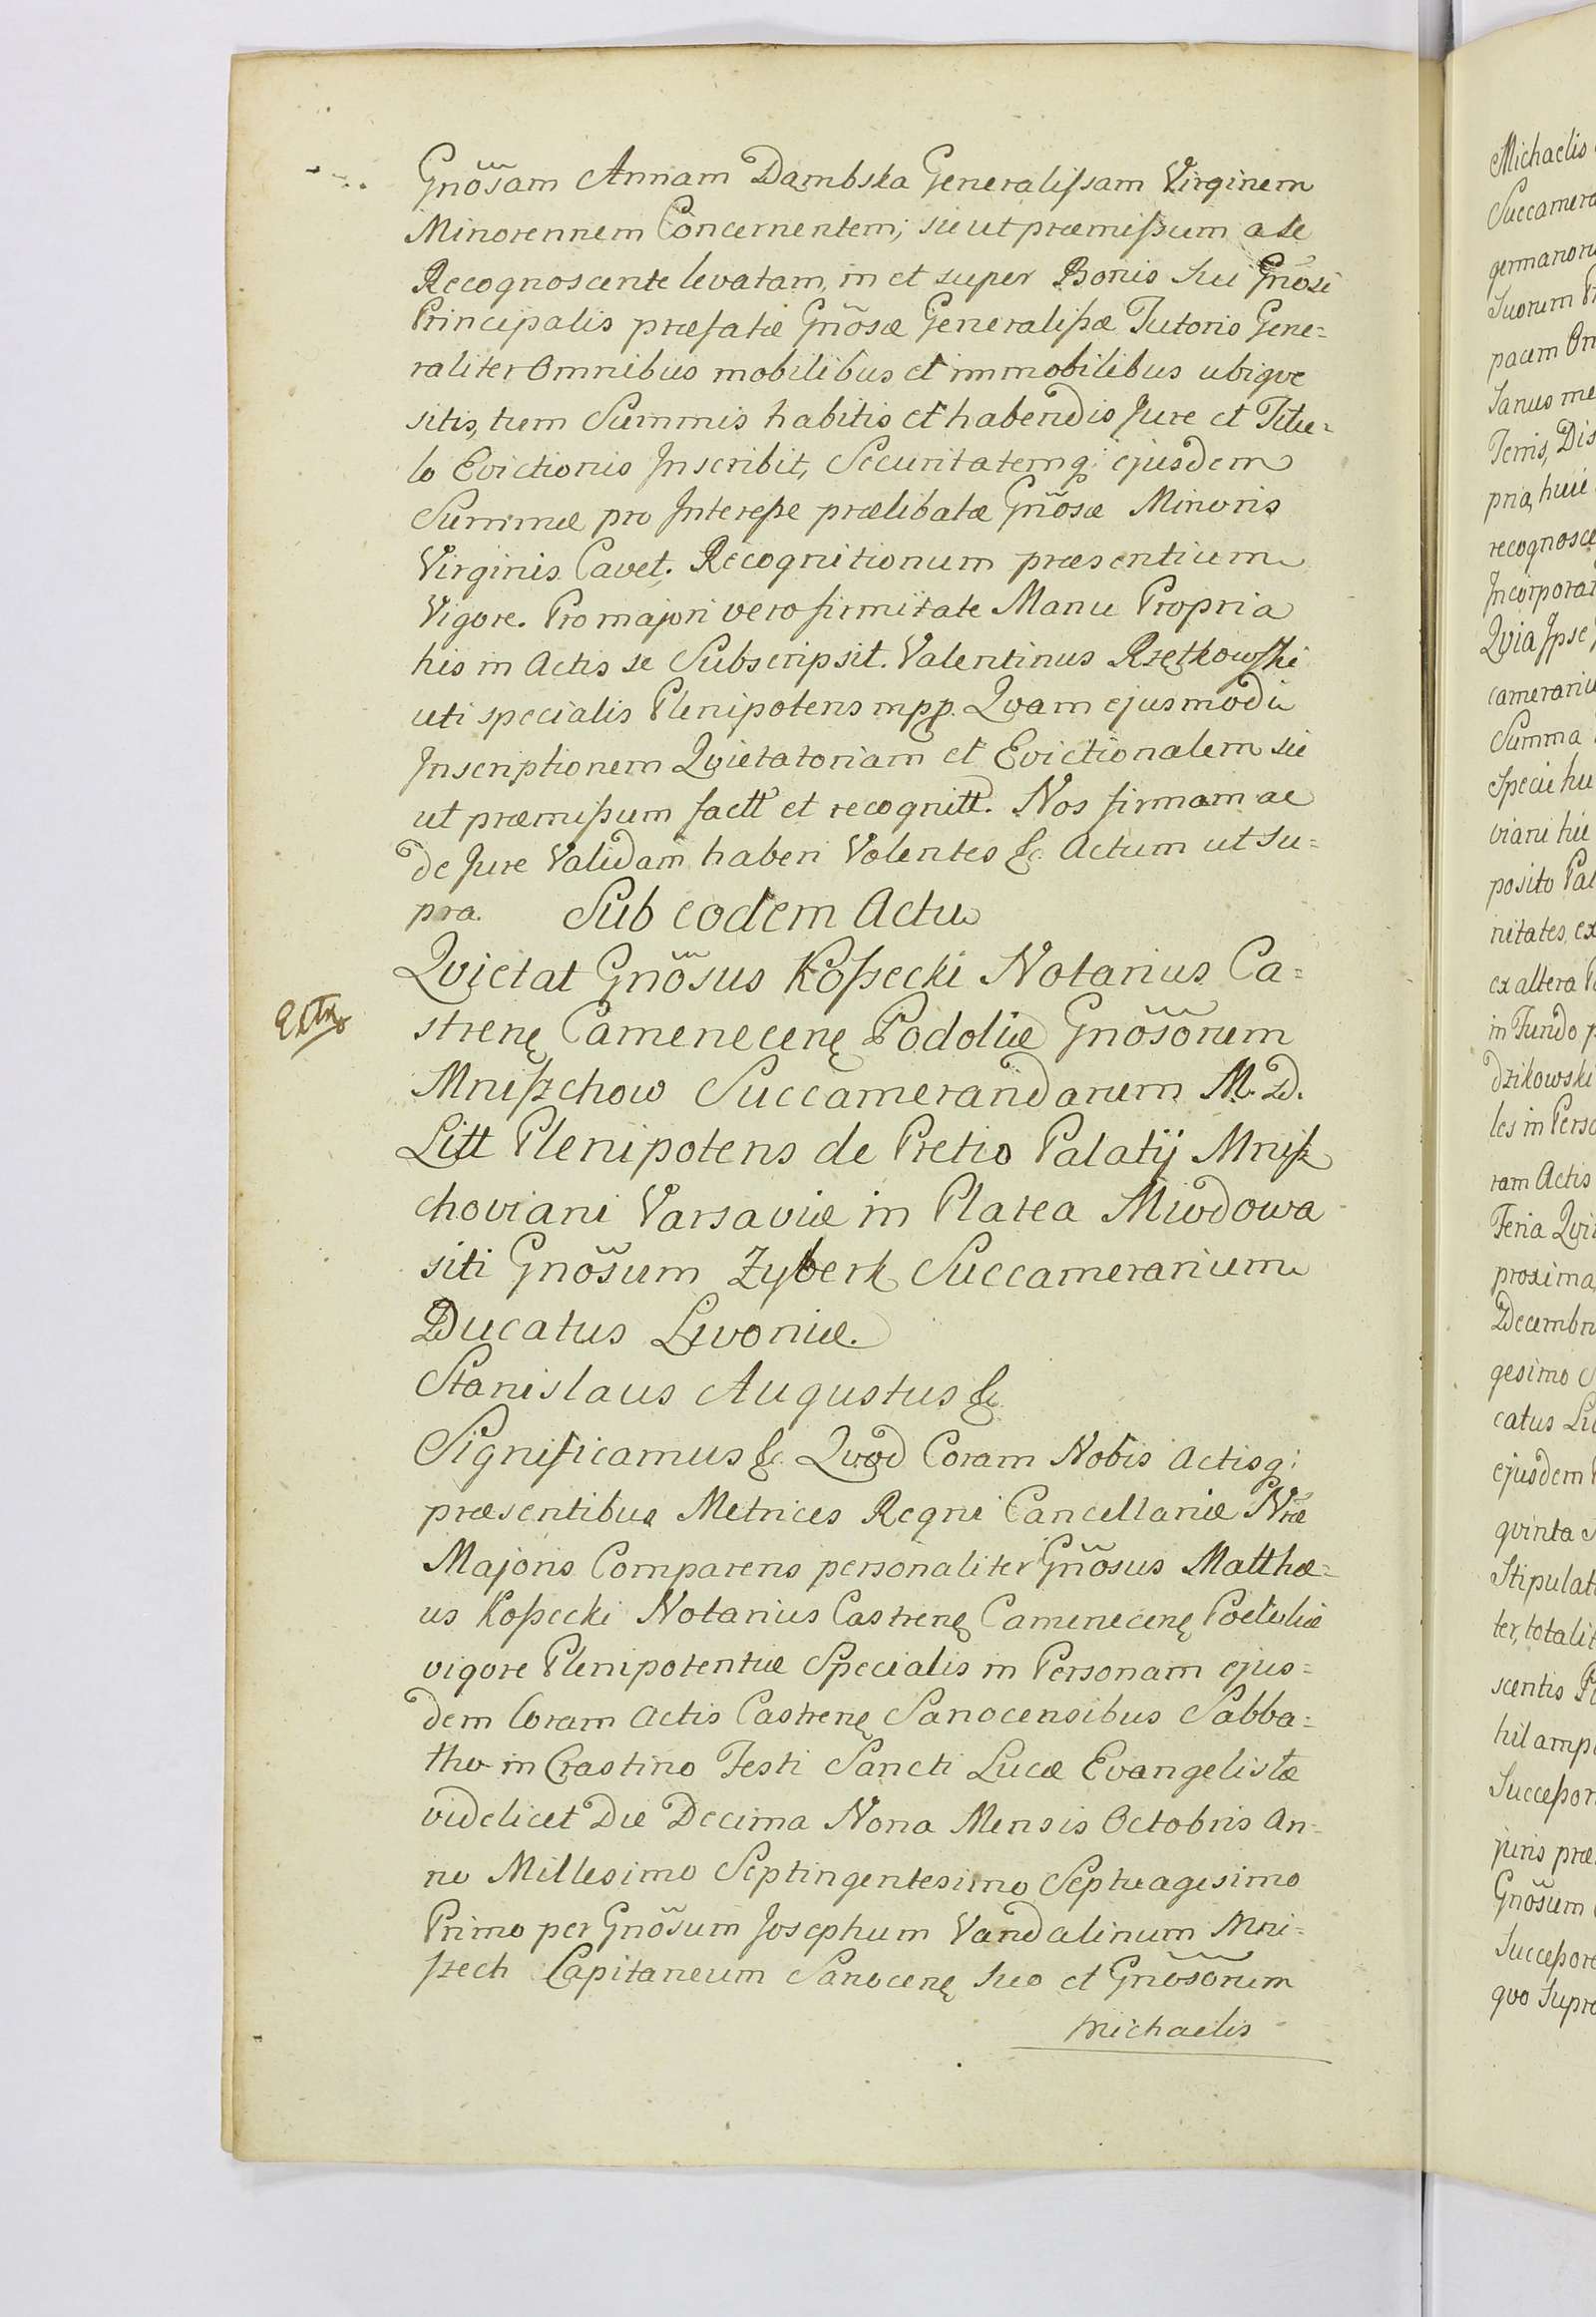 Gnõsam Annam Dambska Generalißam Virginem
Minorennem Concernentem; sicut præmißum a se
Recognoscente levatam, in et super Bonis sui Gnõsi
Principalis præfatæ Gnõsæ Generalißæ Tutoris Gene=
raliter Omnibus mobilibus et immobilibus ubiqve
sitis, tum Summis habitis et habendis Jure et Titu=
lo Evictionis Inscribit, Securitatemq; ejusdem
Summæ pro Intereße prælibatæ Gnõsæ Minoris
Virginis Cavet. Recognitionum præsentium
Vigore. Pro majori vero firmitate Manu Propria
his in Actis se Subscripsit. Valentinus Rzętkowski
uti specialis Plenipotens mpp. Qvam ejusmodi
Inscriptionem Qvietatoriam et Evictionalem sic
ut præmißum factt et recognitt. Nos firmam ac
de Jure Validam haberi Volentes &c. Actum ut su=
pra. Sub eodem Actu
Qvietat Gnõsus Koßecki Notarius Ca=
strenę Camenecenę Podoliæ Gnõsõrum
Mnißchow Succamerandarum M. D.
Litt Plenipotens de Pretio Palatij Mnisz
choviani Varsaviæ in Platea Miodowa
siti Gnõsum Zyberk Succamerarium
Ducatus Livoniæ.
Stanislaus Augustus &c.
Significamus &c. Qvod Coram Nobis Actisq;
præsentibus Metrices Regni Cancellariæ Nræ
Majoris Comparens personaliter Gnõsus Matthæ=
us Koßecki Notarius Castrenę Camenecenę Podoliæ
vigore Plenipotentiæ Specialis in Personam ejus=
dem Coram Actis Castrenę Sanocensibus Sabba=
tho in Crastino Festi Sancti Lucæ Evangelistæ
videlicet Die Decima Nona Mensis Octobris An=
no Millesimo Septingentesimo Septuagesimo
Primo per Gnõsum Josephum Vandalinum Mni=
szech Capitaneum Sanocenę suo et Gnõsõrum
Michaelis
Michaelis
Succamera
germanoru
Suorum
pacem Om
Sanus me
Terris, Dis
pria, huic
recognosce
Incorporat
Qvia Ipse
camerariu
Summa
Specie hu
viani hic
posito Pal
nitates, ex
ex altera
in Fundo p
dzikowski
les in Perso
ram Actis
Feria Qvi
proxima
Decembri
gesimo
catus Li
ejusdem
qvinta
Stipulat
ter, totalit
scentis
hil amp
Succeßor
juris præ
Gnõsum
Succeßore
qvo Supra